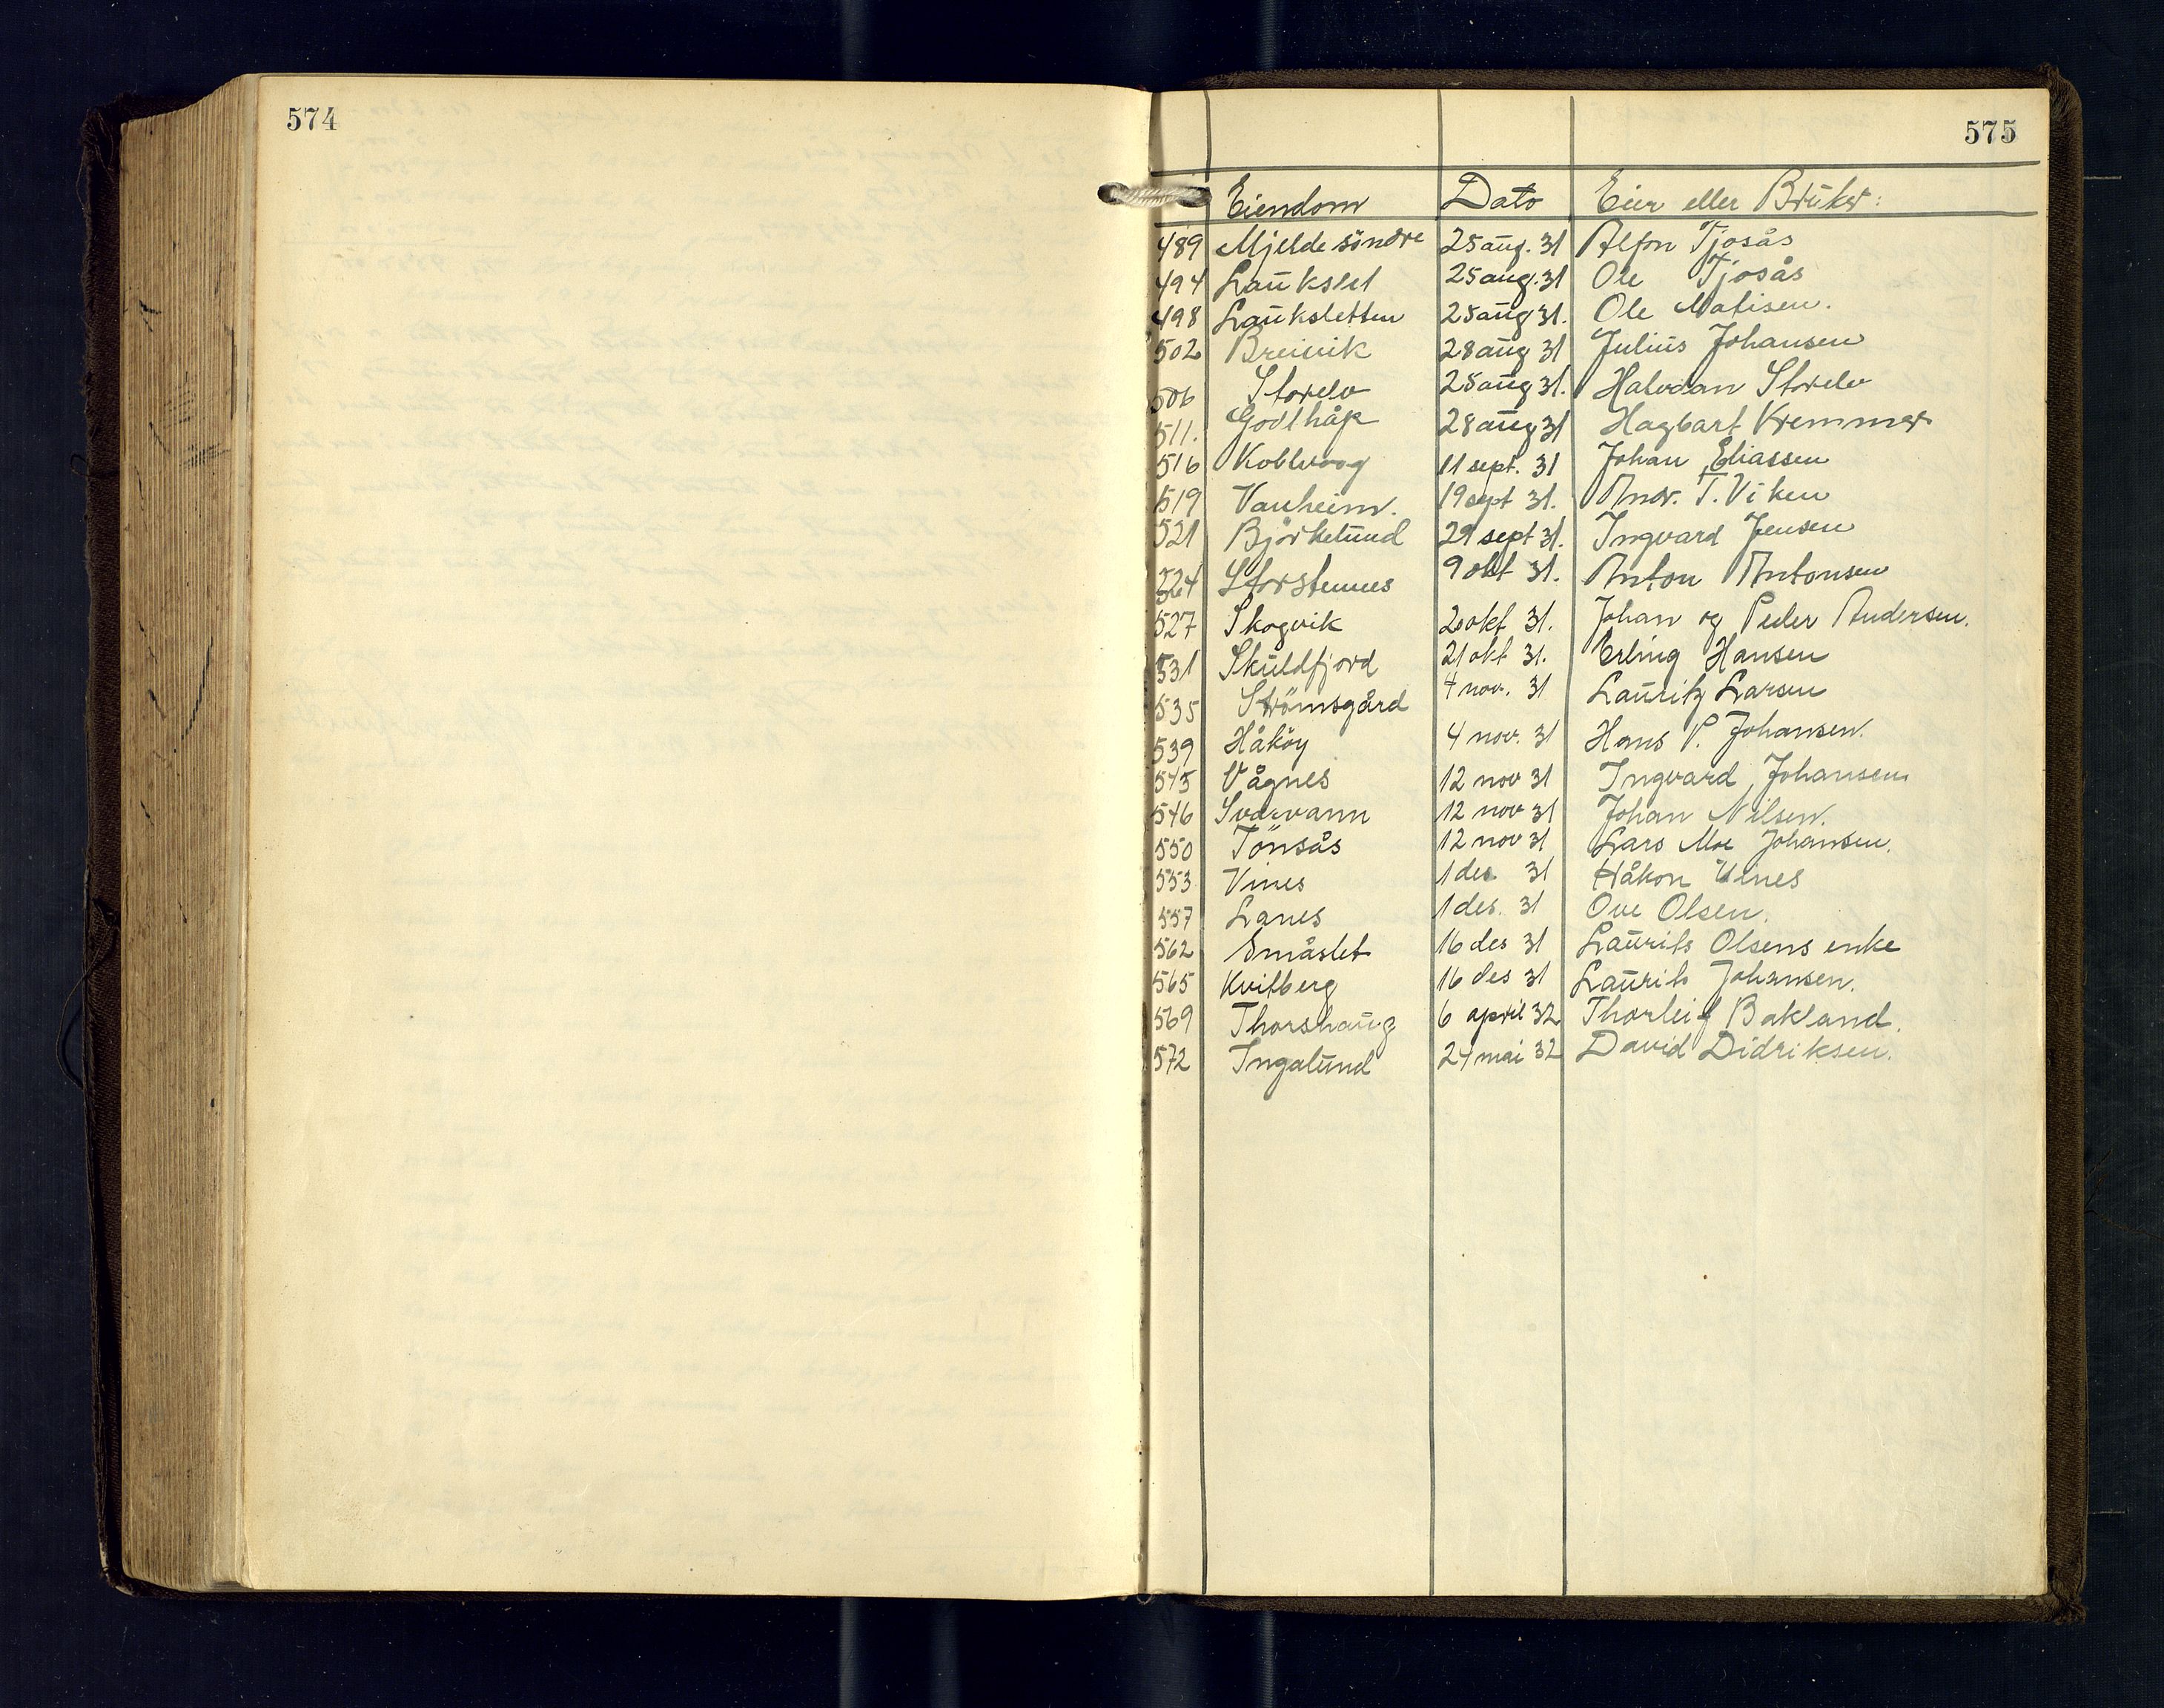 574
575
Eiendom Dato Eier eller Brüker:
489 Mjelde söndre 25 aug. 31 Alfon Tjosås
494 Laükslet 25 aug. 31 Ole Tjosås
498 Laüksletten 25 aüg 31. Ole Matisen.
502 Breivik 28 aüg 31 Juliüs Johansen
506 Storelv 25 aüg 31. Halvdan Storelv
511. Godthåp 28 aüg 31 Hagbart Kremmer
516 Koblvaag 11 sept. 31 Johan Eliassen
519 Vanheim. 19 sept 31. Andr. T. Viken
521 Björkelünd 29 sept 31. Ingvard Jensen
524 Storstennes 9 okt 31. Anton Antonsen
527 Skogvik 20 okt 31. Johan og Peder Andersen.
531 Sküldfjord 21 okt 31. Erling Hansen
535 Strömsgård 4 nov. 31 Laüritz Larsen
539 Håköy 4 nov. 31 Hans P. Johansen.
543 Vågnes 12 nov 31 Ingvard Johansen
546 Svarvann 12 nov 31 Johan Nilsen.
550 Tönsås 12 nov 31 Lars Moe Johansen.
553 Vines 1 des. 31 Håkon Vines
557 Lanes 1 des. 31 Ove Olsen.
562 Småslet 16 des 31 Laürits Olsens enke
565 Kvitberg 16 des 31 Laürits Johansen.
569 Thorshaüg 6 april 32 Thorleif Bakland.
572 Ingalünd 24 mai 32 David Didriksen.